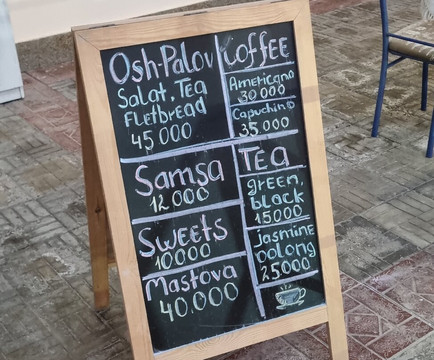 Osh-Palov
Salat, Tea
Fletbread
45 000
Samsa
12 000
Sweets
10000
Mastova
40.000
Coffee
Americano
30 000
Capuchino
35.000
Tea
green,
black
15000
jasmine
oolong
25000